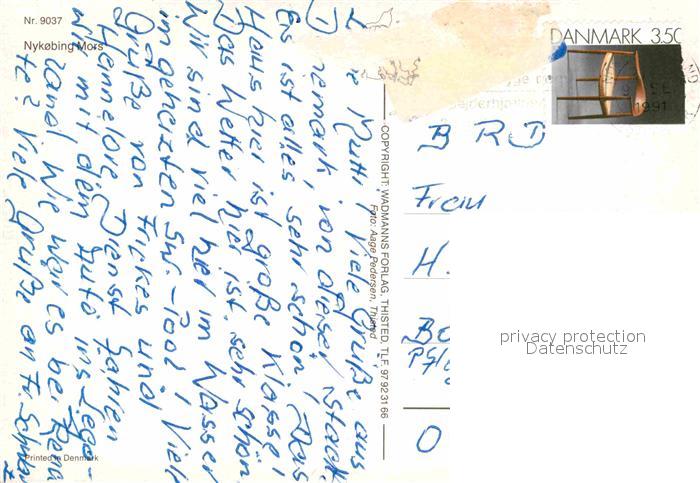 Nr. 9037
Nykøbing Mors
DANMARK 3.50
1991
Mutti! Viele Grüße aus
Dänemark, von dieser Stadt.
Es ist alles sehr schön, Das
Haus hier ist große Klasse!
Das Wetter hier ist sehr schön.
Wir sind viel hier im Wasser
im geheizten Sw.-Pool! Viele
Grüße von Frickes und
Hannelore Dienst fahren
wir mit dem Auto ins Lego-
land. Wie war es bei Rena
te? Viele Grüße an Fr.
COPYRIGHT: WADMANNS FORLAG, THISTED, TLF. 97 92 31 66
Foto: Aage Pedersen, Thisted
B R D
Frau
H.
privacy protection
Datenschutz
O
Printed in Denmark